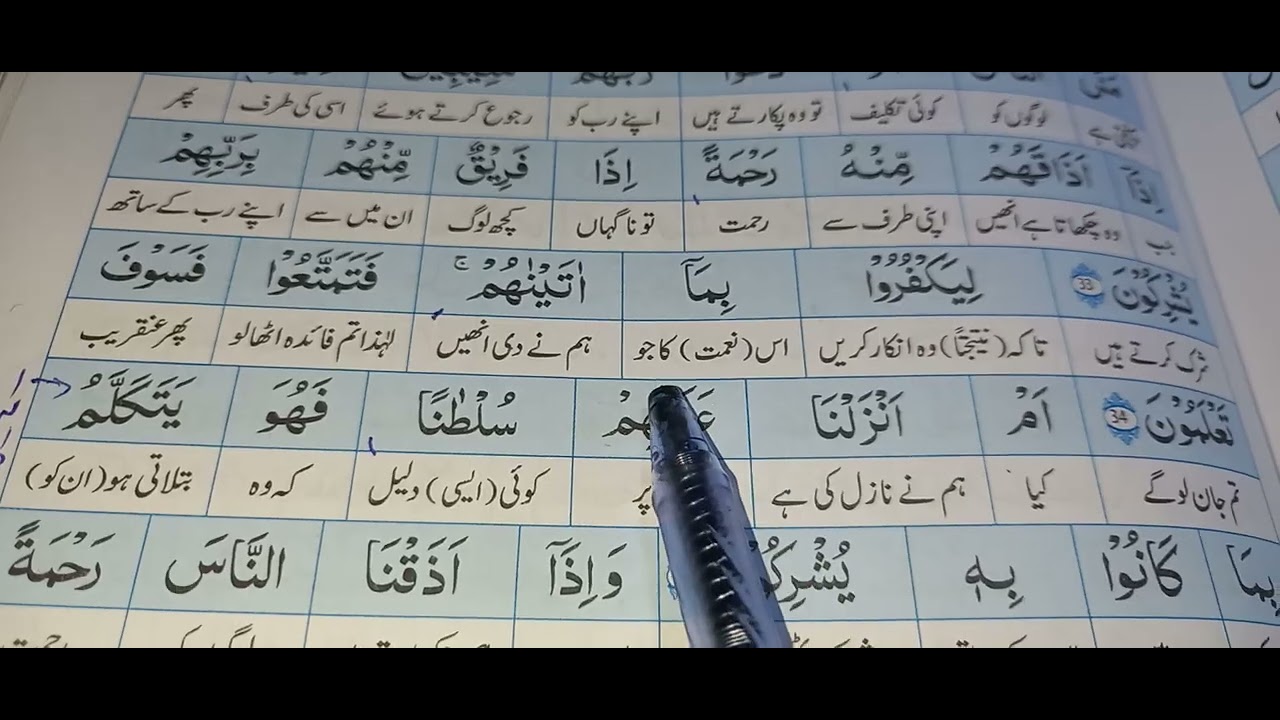 لوگوں کو کوئی تکلیف تو وہ پکارتے ہیں اپنے رب کو رجوع کرتے ہوئے اسی کی طرف پھر
اِذَآ اَذَاقَهُمْ مِّنْهُ رَحْمَةً اِذَا فَرِيْقٌ مِّنْهُمْ بِرَبِّهِمْ
جب وہ چکھاتا ہے انھیں اپنی طرف سے رحمت تو ناگہاں کچھ لوگ ان میں سے اپنے رب کے ساتھ
يُشْرِكُوْنَ 33 لِيَكْفُرُوْا بِمَآ اٰتَيْنٰهُمْ ۚ فَتَمَتَّعُوْا فَسَوْفَ
شرک کرتے ہیں تاکہ (نتیجتاً) وہ انکار کریں اس (نعمت) کا جو ہم نے دی انھیں لہٰذا تم فائدہ اٹھالو پھر عنقریب
تَعْلَمُوْنَ 34 اَمْ اَنْزَلْنَا سُلْطٰنًا فَهُوَ يَتَكَلَّمُ
تم جان لوگے کیا ہم نے نازل کی ہے پر کوئی (ایسی) دلیل کہ وہ بتلاتی ہو (ان کو)
بِمَا كَانُوْا بِهٖ وَاِذَآ اَذَقْنَا النَّاسَ رَحْمَةً